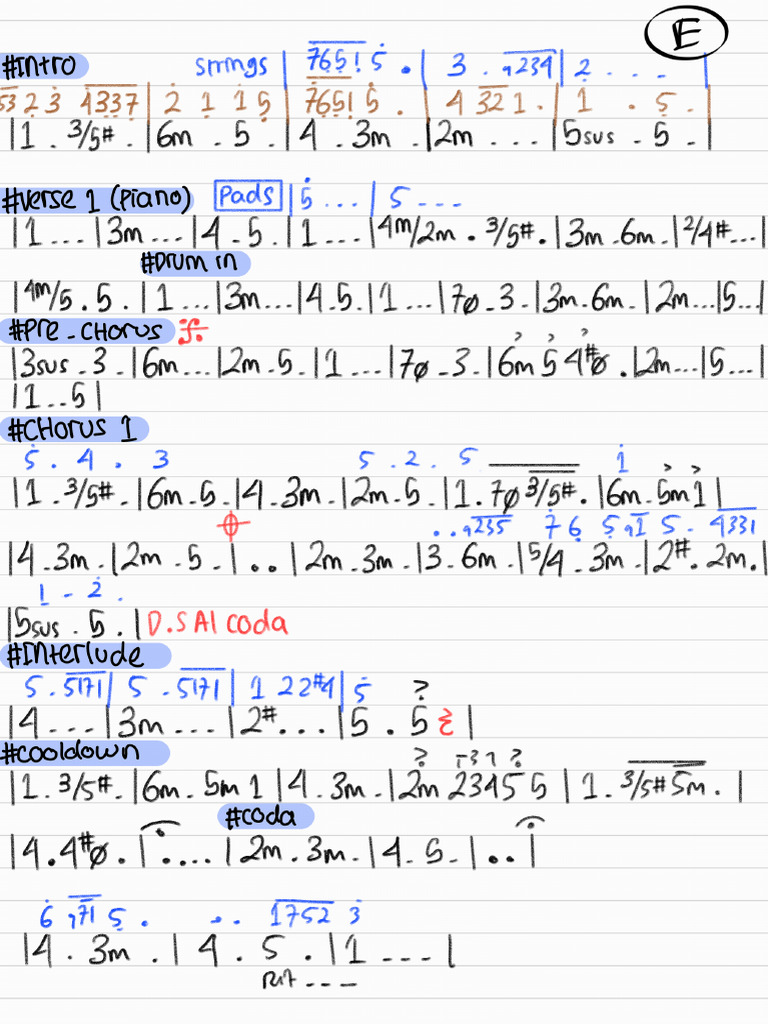 E
#Intro strings | 765! 5 . | 3 . 9234 | 2 . . . |
532 3 4337 | 2 1 1 5 | 7651 5 . | 4 321 . | 1 . 5 . |
|1 . 3/5# . |6m . 5 . |4 . 3m . |2m . . . |5sus . 5 . |
#Verse 1 (Piano) Pads |5 . . . | 5 - - -
|1 ... |3m ... |4 . 5 . |1 ... |4m/2m . 3/5# . |3m . 6m . |2/4# ... |
#Drum in
|4m/5 . 5 . |1 ... |3m ... |4 . 5 . |1 ... |7ø . 3 . |3m . 6m . |2m ... |5 ... |
#Pre-CHorus
|3sus . 3 . |6m ... |2m . 5 . |1 ... |7ø . 3 . |6m 5 4#ø . |2m ... |5 ... |
|1 . . 5 |
#CHorus 1
5 . 4 . 3 5 . 2 . 5 1
|1 . 3/5# . |6m . 5 . |4 . 3m . |2m . 5 . |1 . 7ø 3/5# . |6m . 5m 1 |
. . 9235 7 6 5 91 5 . 4331
|4 . 3m . |2m . 5 . | . . |2m . 3m . |3 . 6m . |5/4 . 3m . |2# . 2m . |
1 - 2 .
|5sus . 5 . | D.S Al coda
#Interlude
5 . 5171 | 5 . 5171 | 1 2 2#4 | 5 ?
|4 ... |3m ... |2# ... |5 . 5 |
#Cooldown
|1 . 3/5# . |6m . 5m 1 |4 . 3m . |2m 23455 |1 . 3/5# 5m . |
#coda
|4 . 4#ø . | . . . . |2m . 3m . |4 . 5 . | . . |
6 971 5 . . . 1752 3
|4 . 3m . | 4 . 5 . |1 - - - |
Rit - - -